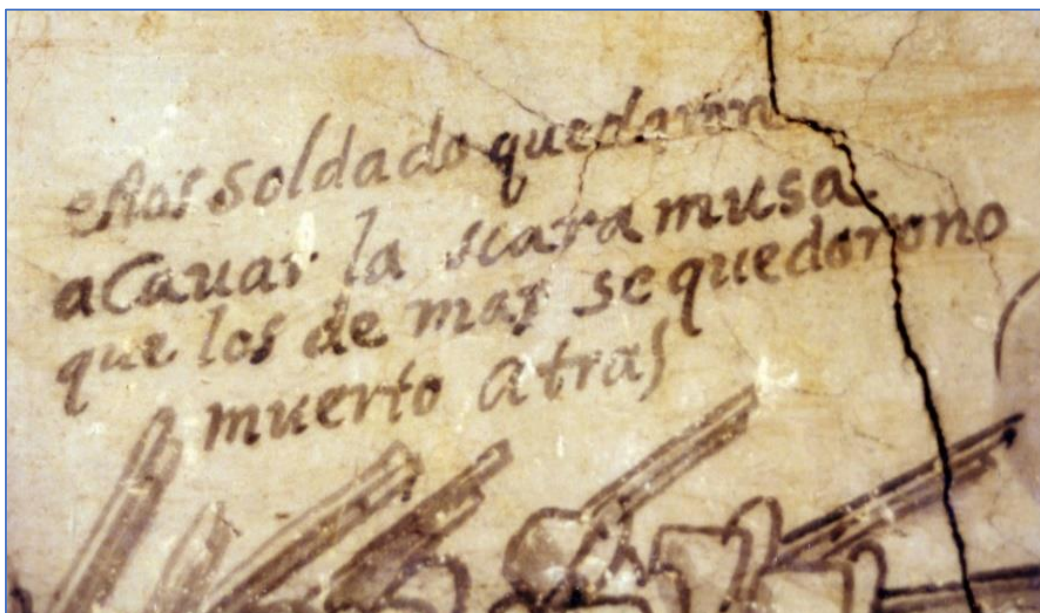 estos soldado quedaron
acauar la scaramusa
que los de mas se quedorono
muerto atras